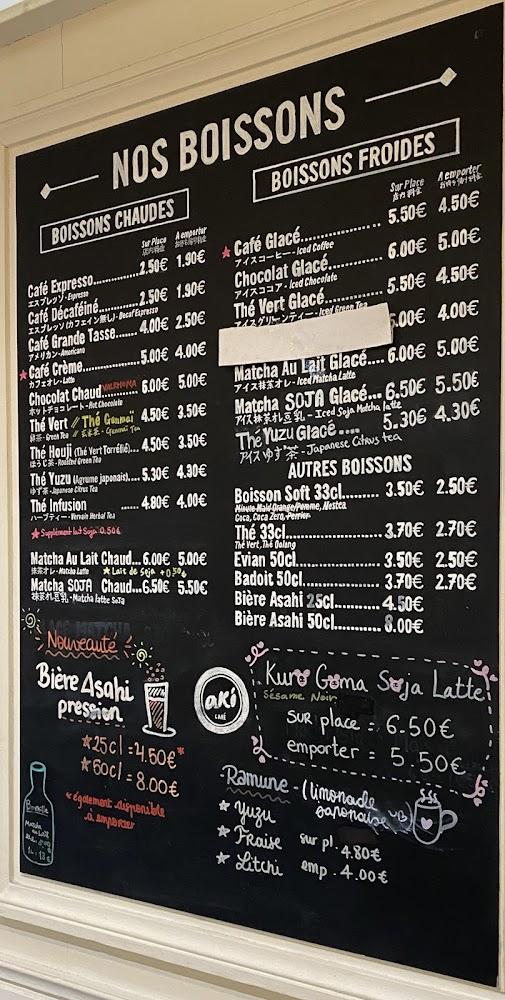 NOS BOISSONS
BOISSONS CHAUDES
Sur Place A emporter
店内料金 お持ち帰り料金
Café Expresso............2.50€ 1.90€
エスプレッソ - Espresso
Café Décaféiné............2.50€ 1.90€
エスプレッソ (カフェイン無し) - Decaf Espresso
Café Grande Tasse.......4.00€ 2.50€
アメリカン - Americano
Café Crème................5.00€ 4.00€
カフェオレ - Latte
Chocolat Chaud VALRHONA 6.00€ 5.00€
ホットチョコレート - Hot Chocolate
Thé Vert // Thé Genmaï 4.50€ 3.50€
緑茶 - Green Tea // 玄米茶 - Genmaï Tea
Thé Houji (Thé Vert Torréfié)...4.50€ 3.50€
ほうじ茶 - Roasted Green Tea
Thé Yuzu (Agrume japonais)....5.30€ 4.30€
ゆず茶 - Japanese Citrus Tea
Thé Infusion ........4.80€ 4.00€
ハーブティー - Vervain Herbal Tea
Supplément lait Soja 0.50€
Matcha Au Lait Chaud...6.00€ 5.00€
抹茶オレ - Matcha Latte Lait de soja + 0.50€
Matcha SOJA Chaud...6.50€ 5.50€
抹茶オレ豆乳 - Matcha latte Soja
Nouveauté
Bière Asahi
pression
25cl = 4.50€*
50cl = 8.00€
* également disponible
à emporter
BOISSONS FROIDES
Sur Place A emporter
店内料金 お持ち帰り料金
Café Glacé.................. 5.50€ 4.50€
アイスコーヒー - Iced Coffee
Chocolat Glacé............. 6.00€ 5.00€
アイスココア - Iced Chocolate
Thé Vert Glacé............. 5.50€ 4.50€
アイスグリーンティー - Iced Green Tea
5.00€ 4.00€
Matcha Au Lait Glacé.... 6.00€ 5.00€
アイス抹茶オレ - Iced Matcha Latte
Matcha SOJA Glacé... 6.50€ 5.50€
アイス抹茶オレ豆乳 - Iced Soja Matcha latte
Thé Yuzu Glacé .... 5.30€ 4.30€
アイスゆず茶 - Japanese Citrus tea
AUTRES BOISSONS
Boisson Soft 33cl......... 3.50€ 2.50€
Minute Maid Orange/Pomme, Nestea
Coca, Coca Zero, Perrier
Thé 33cl.................... 3.70€ 2.70€
Thé Vert, Thé Oolong
Evian 50cl.................. 3.50€ 2.50€
Badoit 50cl................. 3.70€ 2.70€
Bière Asahi 25cl.......... 4.50€
Bière Asahi 50cl........... 8.00€
aki
CAFÉ
Kuro Goma Soja Latte
Sésame Noir
sur place = 6.50€
emporter = 5.50€
Ramune - (limonade
japonaise
Yuzu
Fraise sur pl. 4.80€
Litchi emp. 4.00€